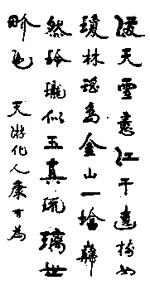 漫天雪江干遠樹如
瓊林瑤島金山一塔巋
然玲瓏似玉真琉璃世
界也
天游化人康有為